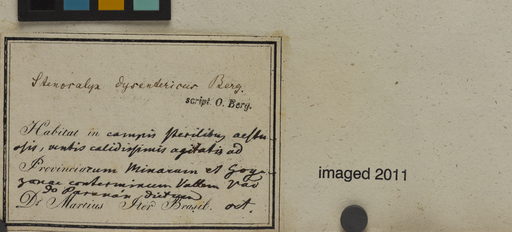 Stenocalyx dysentericus Berg.
script. O. Berg.
Habitat in campis sterilibus aestu-
osis, ventis calidissimis agitatis ad
Provinciarum Minarum et Goya-
zanae conterminum Vallem Vao
do Paranan dictum
Dr Martius Iter Brasil. oct.
imaged 2011